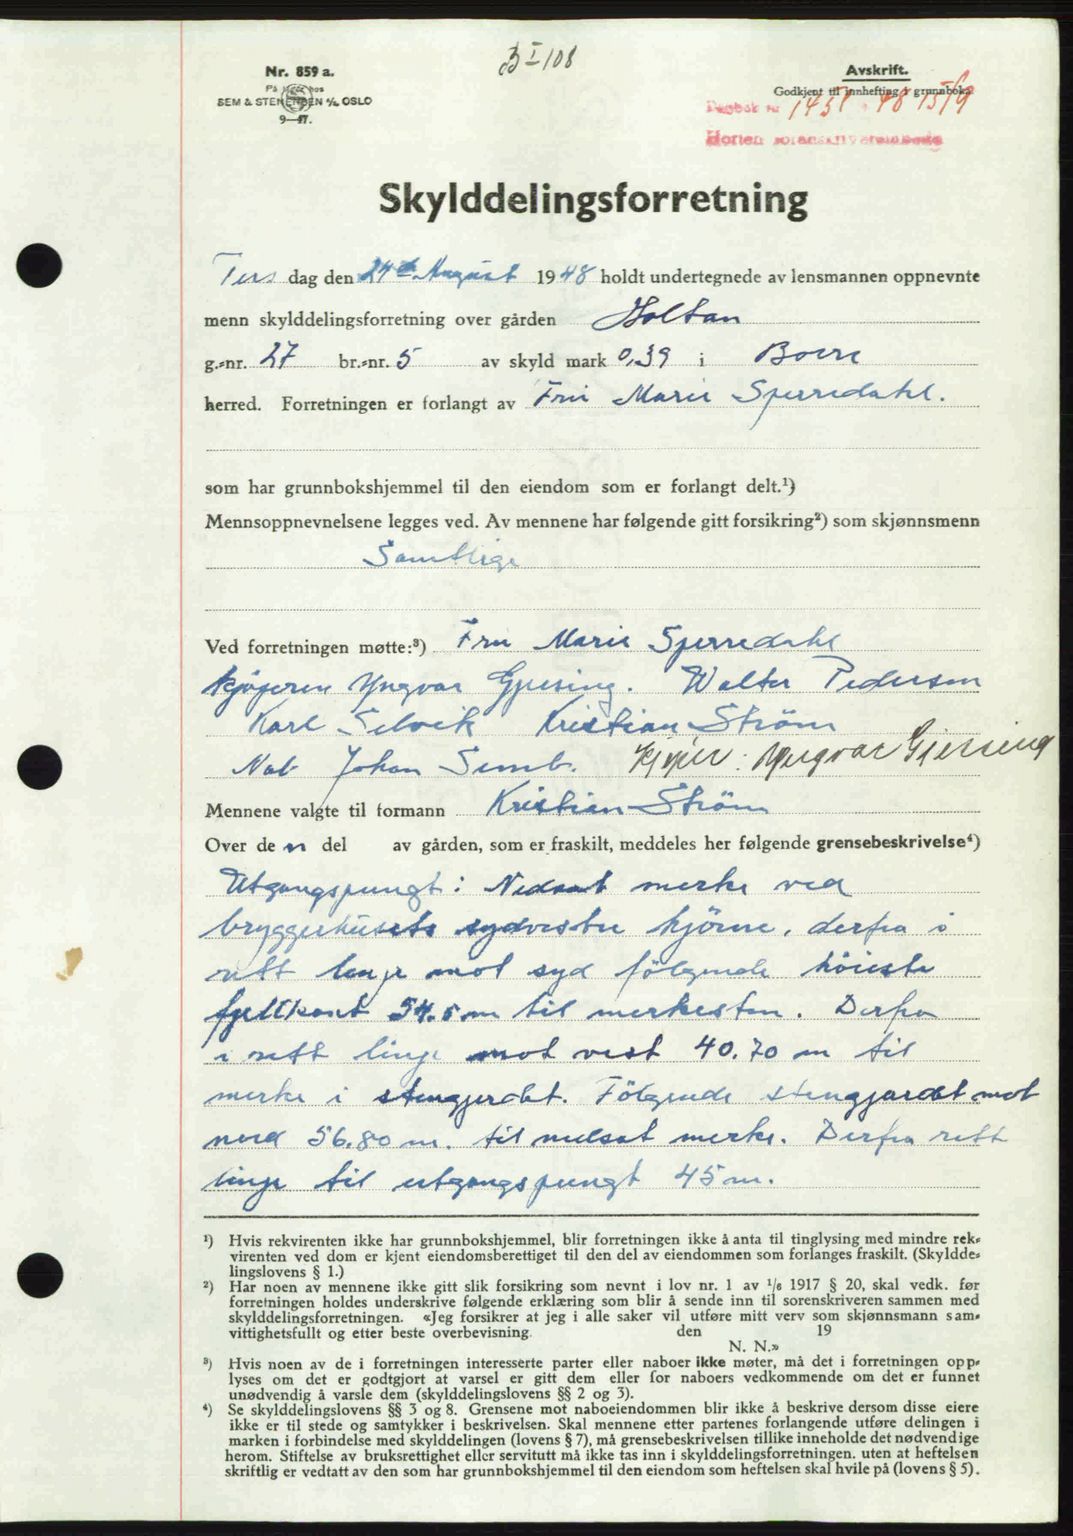 B I-108
Nr. 859 a.
På lager hos
SEM & STENERSEN A/S OSLO
9—47.
Avskrift.
Godkjent til innhefting i grunnboka
Dagbok nr 1431 - 48 15/9
Horten sorenskriverembede
Skylddelingsforretning
Tirs dag den 24de August 1948 holdt undertegnede av lensmannen oppnevnte
menn skylddelingsforretning over gården Holtan
g.-nr. 27 br.-nr. 5 av skyld mark 0,39 i Borre
herred. Forretningen er forlangt av Fru Marie Sperredahl.
som har grunnbokshjemmel til den eiendom som er forlangt delt.¹)
Mennsoppnevnelsene legges ved. Av mennene har følgende gitt forsikring²) som skjønnsmenn
Samtlige
Ved forretningen møtte:³) Fru Marie Sperredahl
kjøperen Yngvar Gjersing. Walter Pedersen
Karl Selvik Kristian Ström
Nab Johan Semb. Kjøper: Yngvar Gjersing
Mennene valgte til formann Kristian Ström
Over den del av gården, som er fraskilt, meddeles her følgende grensebeskrivelse⁴)
Utgangspungt: Nedsat merke ved
bryggerhusets sydvestre hjörne, derfra i
rett linje mot syd fölgende höieste
fjellkant 54.5 m til merkesten. Derfra
i rett linje mot vest 40.70 m til
merke i stengjerdet. Fölgende stengjærdet mot
nord 56.80 m. til nedsat merke. Derfra rett
linje til utgangspungt 45 m.
¹) Hvis rekvirenten ikke har grunnbokshjemmel, blir forretningen ikke å anta til tinglysing med mindre rek-
virenten ved dom er kjent eiendomsberettiget til den del av eiendommen som forlanges fraskilt. (Skyldde-
lingslovens § 1.)
²) Har noen av mennene ikke gitt slik forsikring som nevnt i lov nr. 1 av 1/6 1917 § 20, skal vedk. før
forretningen holdes underskrive følgende erklæring som blir å sende inn til sorenskriveren sammen med
skylddelingsforretningen. «Jeg forsikrer at jeg i alle saker vil utføre mitt verv som skjønnsmann sam-
vittighetsfullt og etter beste overbevisning. den 19
N. N.»
³) Hvis noen av de i forretningen interesserte parter eller naboer ikke møter, må det i forretningen opp-
lyses om det er godtgjort at varsel er gitt dem eller for naboers vedkommende om det er funnet
unødvendig å varsle dem (skylddelingslovens §§ 2 og 3).
⁴) Se skylddelingslovens §§ 3 og 8. Grensene mot naboeiendommen blir ikke å beskrive dersom disse eiere
ikke er til stede og samtykker i beskrivelsen. Skal mennene etter partenes forlangende utføre delingen i
marken i forbindelse med skylddelingen (lovens § 7), må grensebeskrivelsen tillike inneholde det nødvendige
herom. Stiftelse av bruksrettighet eller servitutt må ikke tas inn i skylddelingsforretningen, uten at heftelsen
skriftlig er vedtatt av den som har grunnbokshjemmel til den eiendom som heftelsen skal hvile på (lovens § 5).